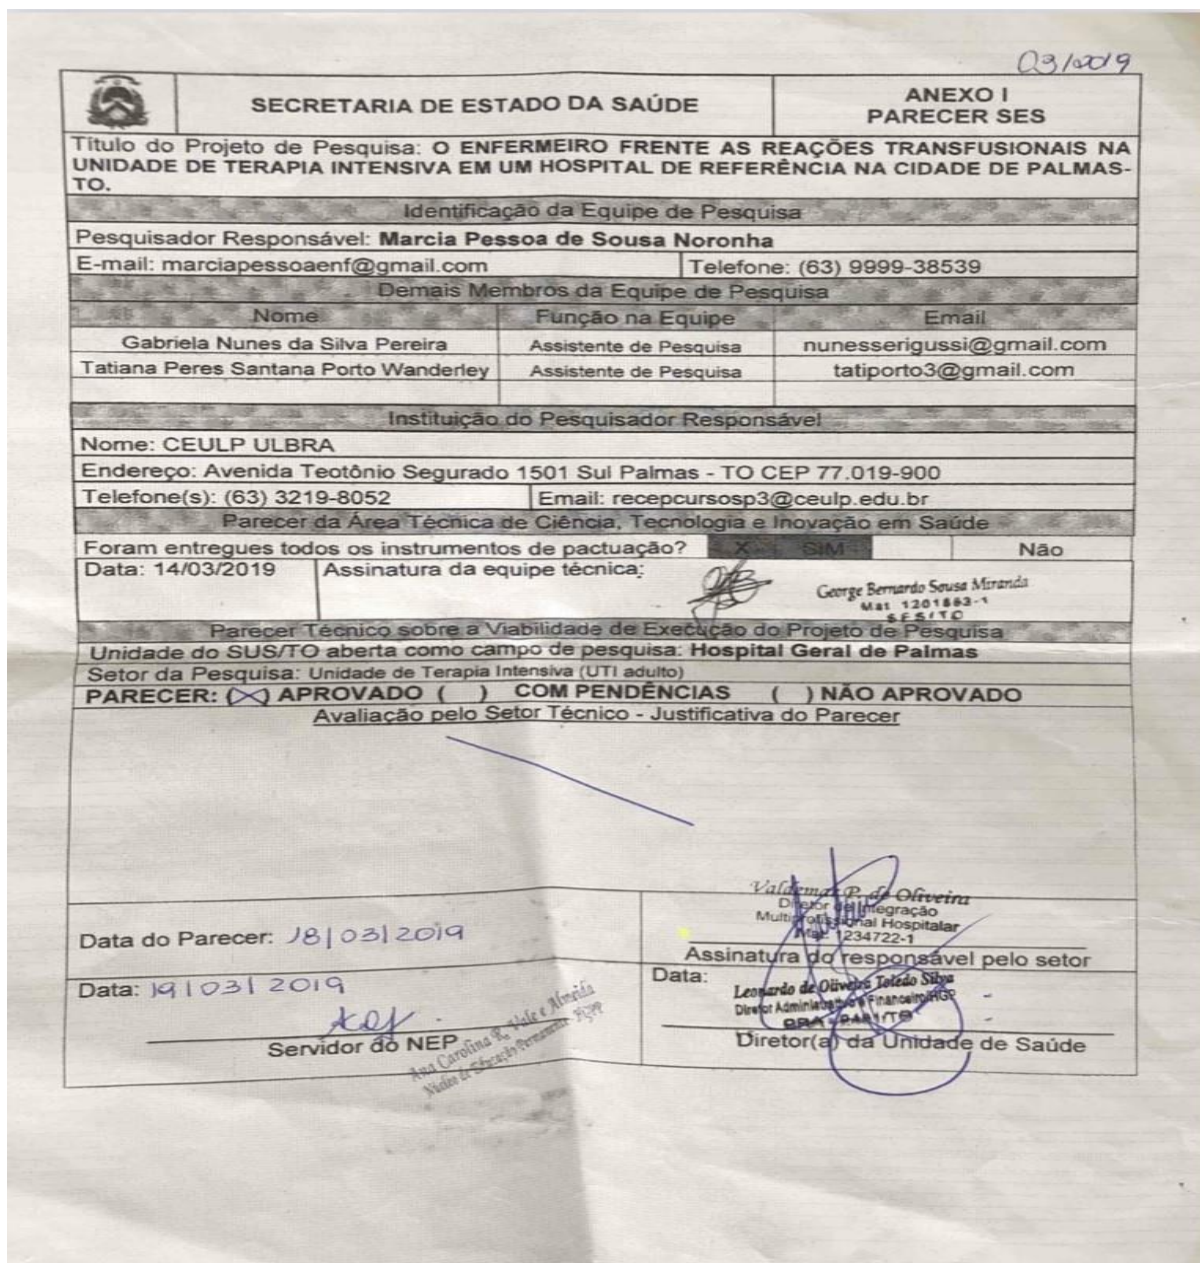 03/2019
SECRETARIA DE ESTADO DA SAÚDE
ANEXO I
PARECER SES
Título do Projeto de Pesquisa: O ENFERMEIRO FRENTE AS REAÇÕES TRANSFUSIONAIS NA
UNIDADE DE TERAPIA INTENSIVA EM UM HOSPITAL DE REFERÊNCIA NA CIDADE DE PALMAS-
TO.
Identificação da Equipe de Pesquisa
Pesquisador Responsável: Marcia Pessoa de Sousa Noronha
E-mail: marciapessoaenf@gmail.com Telefone: (63) 9999-38539
Demais Membros da Equipe de Pesquisa
Nome Função na Equipe Email
Gabriela Nunes da Silva Pereira Assistente de Pesquisa nunesserigussi@gmail.com
Tatiana Peres Santana Porto Wanderley Assistente de Pesquisa tatiporto3@gmail.com
Instituição do Pesquisador Responsável
Nome: CEULP ULBRA
Endereço: Avenida Teotônio Segurado 1501 Sul Palmas - TO CEP 77.019-900
Telefone(s): (63) 3219-8052 Email: recepcursosp3@ceulp.edu.br
Parecer da Área Técnica de Ciência, Tecnologia e Inovação em Saúde
Foram entregues todos os instrumentos de pactuação? X SIM Não
Data: 14/03/2019 Assinatura da equipe técnica:
George Bernardo Sousa Miranda
Mat 1201863-1
SES/TO
Parecer Técnico sobre a Viabilidade de Execução do Projeto de Pesquisa
Unidade do SUS/TO aberta como campo de pesquisa: Hospital Geral de Palmas
Setor da Pesquisa: Unidade de Terapia Intensiva (UTI adulto)
PARECER: (X) APROVADO ( ) COM PENDÊNCIAS ( ) NÃO APROVADO
Avaliação pelo Setor Técnico - Justificativa do Parecer
Valdemar P. de Oliveira
Diretor de Integração
Multiprofissional Hospitalar
Mat. 1234722-1
Data do Parecer: 18/03/2019
Assinatura do responsável pelo setor
Data: 19/03/2019
Servidor do NEP
Ana Carolina R. Vale e Almeida
Núcleo de Educação Permanente
Data:
Leonardo de Oliveira Toledo Silva
Diretor Administrativo e Financeiro/HGP
Diretor(a) da Unidade de Saúde